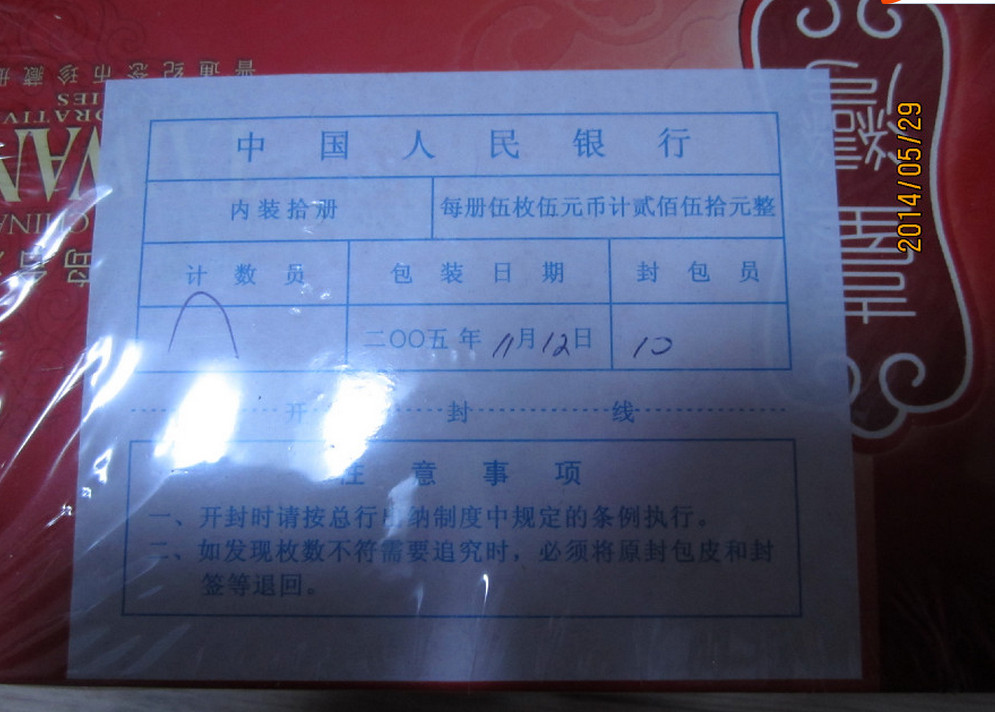 中国人民银行
内装拾册 每册伍枚伍元币计贰佰伍拾元整
计数员 包装日期 封包员
二〇〇五年11月12日 10
开封线
注意事项
一、开封时请按总行出纳制度中规定的条例执行。
二、如发现枚数不符需要追究时，必须将原封包皮和封
签等退回。
普通纪念币珍藏册
2014/05/29